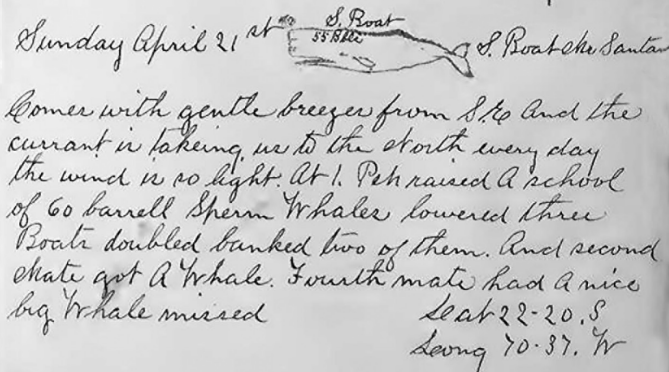 S. Boat
Sunday April 21st 55 Bbls S. Boat Mr Santan
Comes with gentle breezes from S.E. And the
currant is takeing us to the North every day
the wind is so light. At 1. P.M raised A school
of 60 barrell Sperm Whales lowered three
Boats doubled banked two of them. And second
Mate got A Whale. Fourth mate had A nice
big Whale missed
Leat 22-20. S
Leong 70-37. W